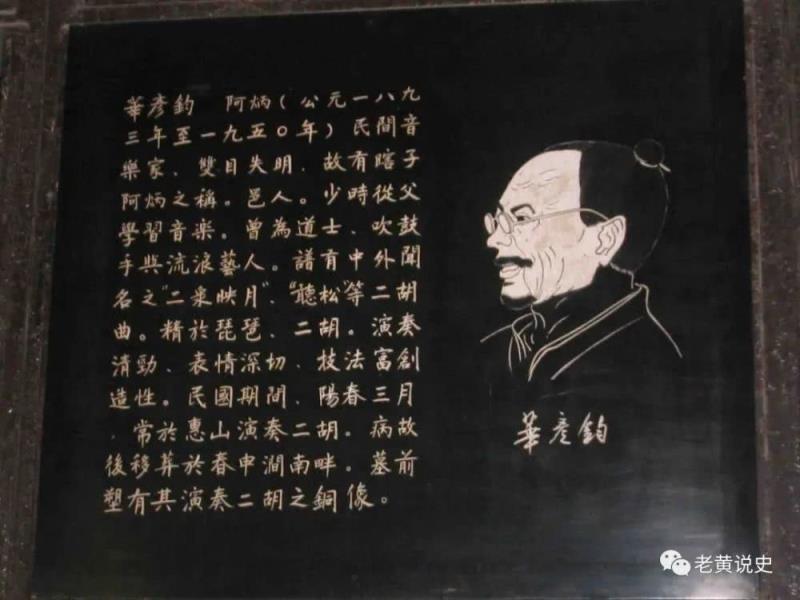 華彥鈞　阿炳（公元一八九
三年至一九五〇年）民間音
樂家、雙目失明、故有瞎子
阿炳之稱。邑人。少時從父
學習音楽。曾為道士、吹鼓
手與流浪藝人。譜有中外聞
名之“二泉映月”、“聽松”等二胡
曲。精於琵琶、二胡。演奏
清勁、表情深切、技法富創
造性。民國期間、陽春三月
、常於惠山演奏二胡。病故
後移葬於春申澗南畔。墓前
塑有其演奏二胡之銅像。
華彥鈞
老黄说史